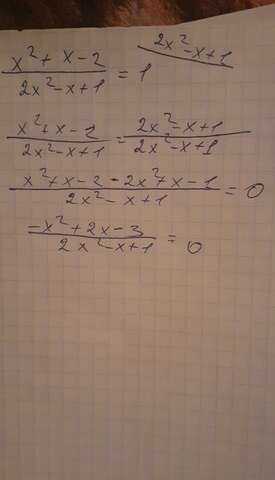 2x²-x+1
x²+x-2
―――― = 1
2x²-x+1
x²+x-2 2x²-x+1
―――― = ――――
2x²-x+1 2x²-x+1
x²+x-2-2x²+x-1
―――――――― = 0
2x²-x+1
-x²+2x-3
―――――― = 0
2x²-x+1